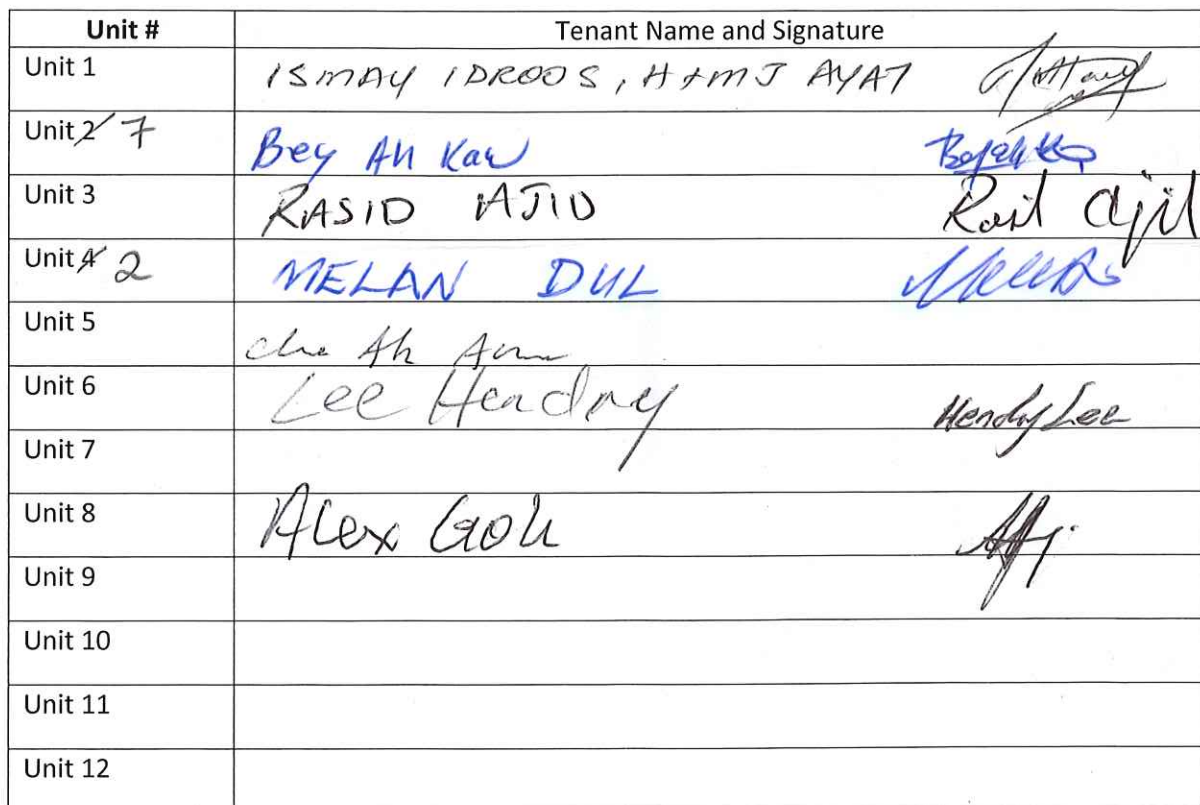 Unit # Tenant Name and Signature
Unit 1 ISMAY IDROOS, H+MJ AYAT
Unit 2 7 Bey Ah Kaw
Unit 3 RASID AJID Rasid Ajid
Unit 4 2 MELAN DUL
Unit 5 Ah
Unit 6 Lee Hendry Hendry Lee
Unit 7
Unit 8 Alex Goh
Unit 9
Unit 10
Unit 11
Unit 12